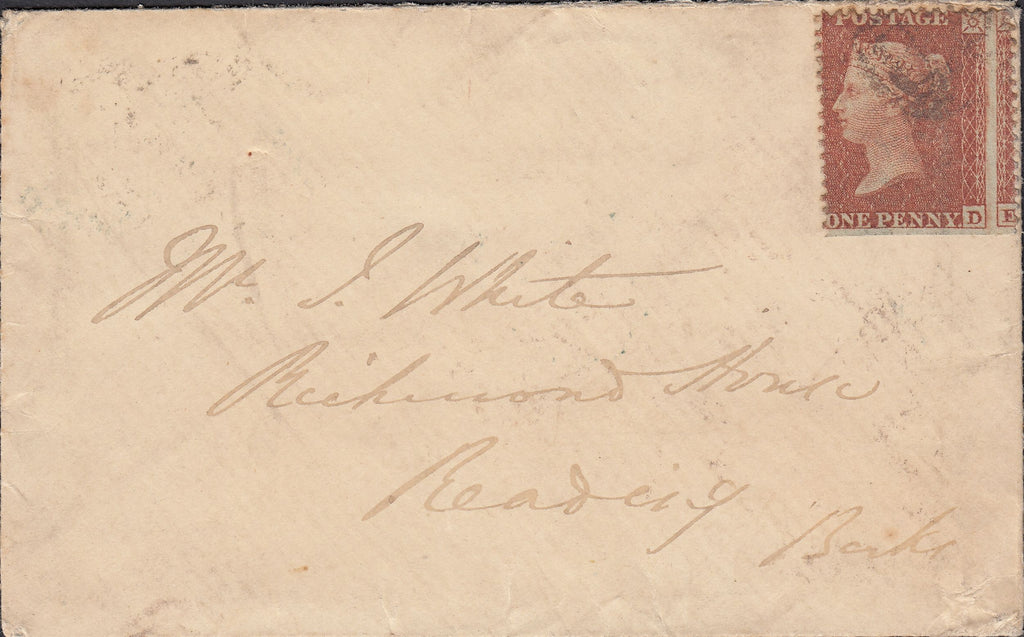 POSTAGE
ONE PENNY D E
Mr. J. White
Richmond House
Reading
Berks